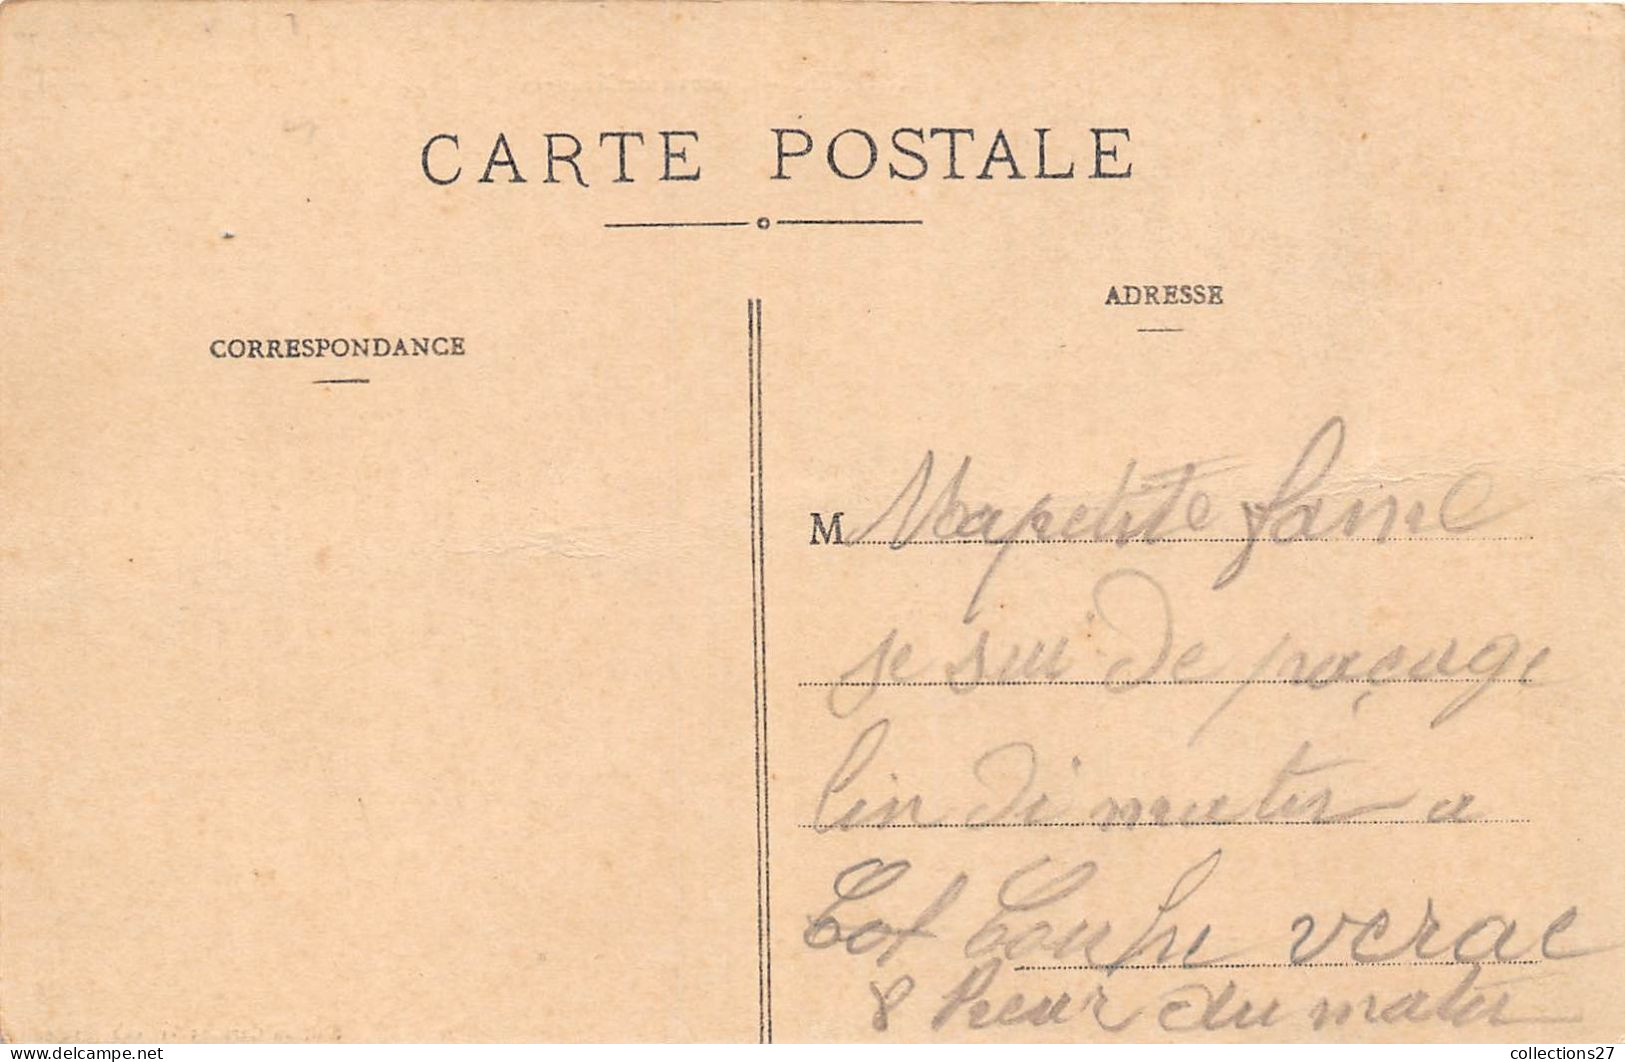 CARTE POSTALE
ADRESSE
CORRESPONDANCE
M Ma petite fame
je sui de paçage
lin di matin a
verac
8 heur du matin
collections27